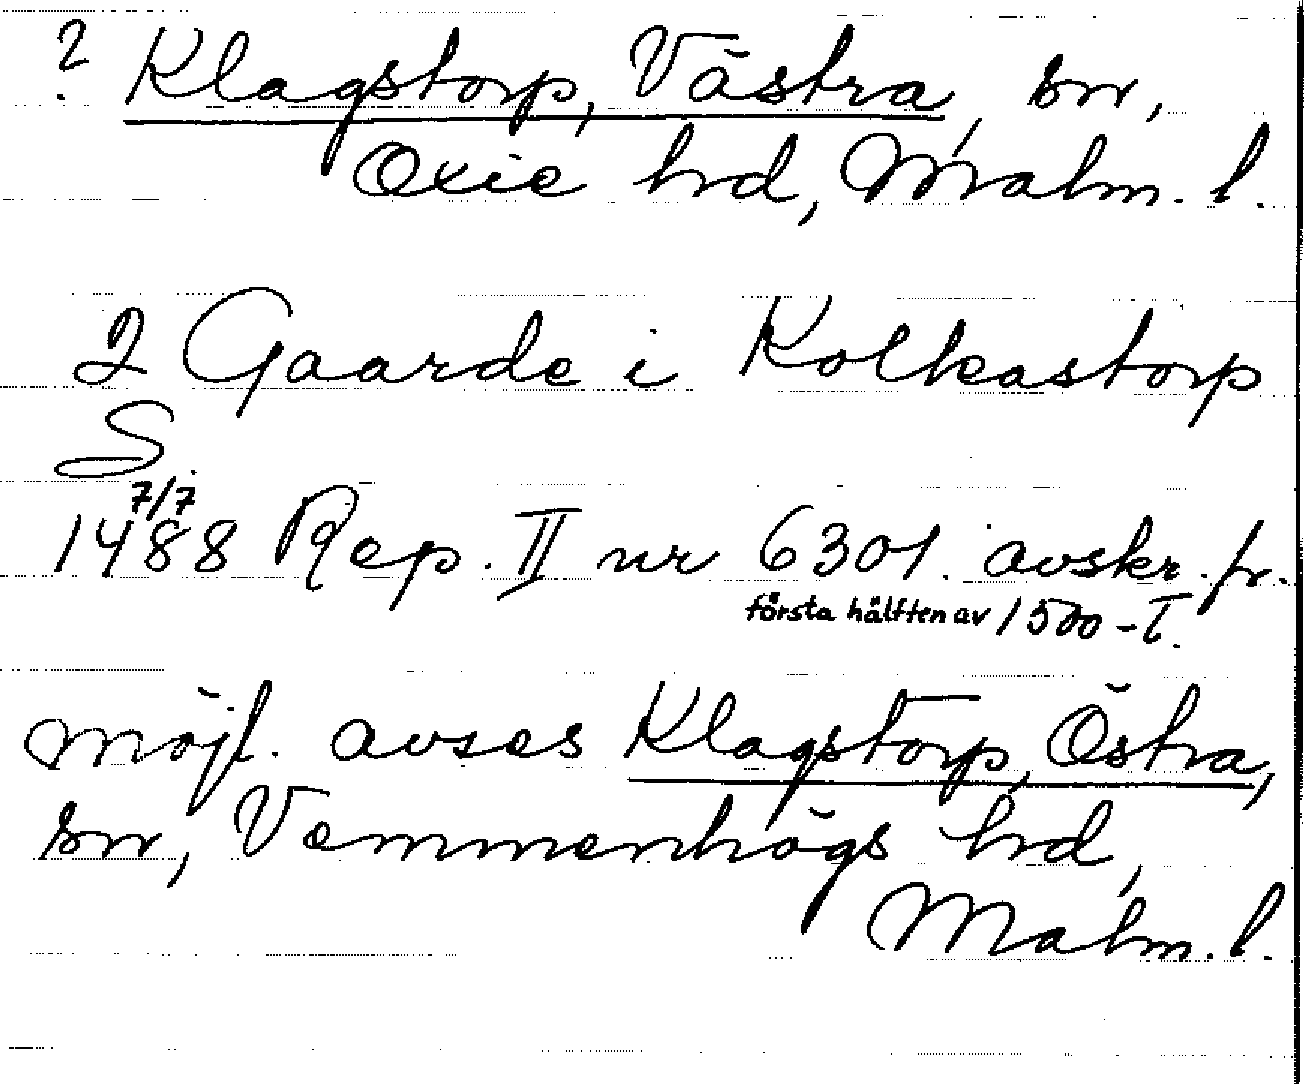 ? Klagstorp, Västra, sn,
Oxie hd, Malm. l.
2 Gaarde i Kolkastorp
S
1488 7/7 Rep. II nr 6301. avskr. fr.
första hälften av 1500-t.
möjl. avses Klagstorp, Östra,
sn, Vemmenhögs hd,
Malm. l.